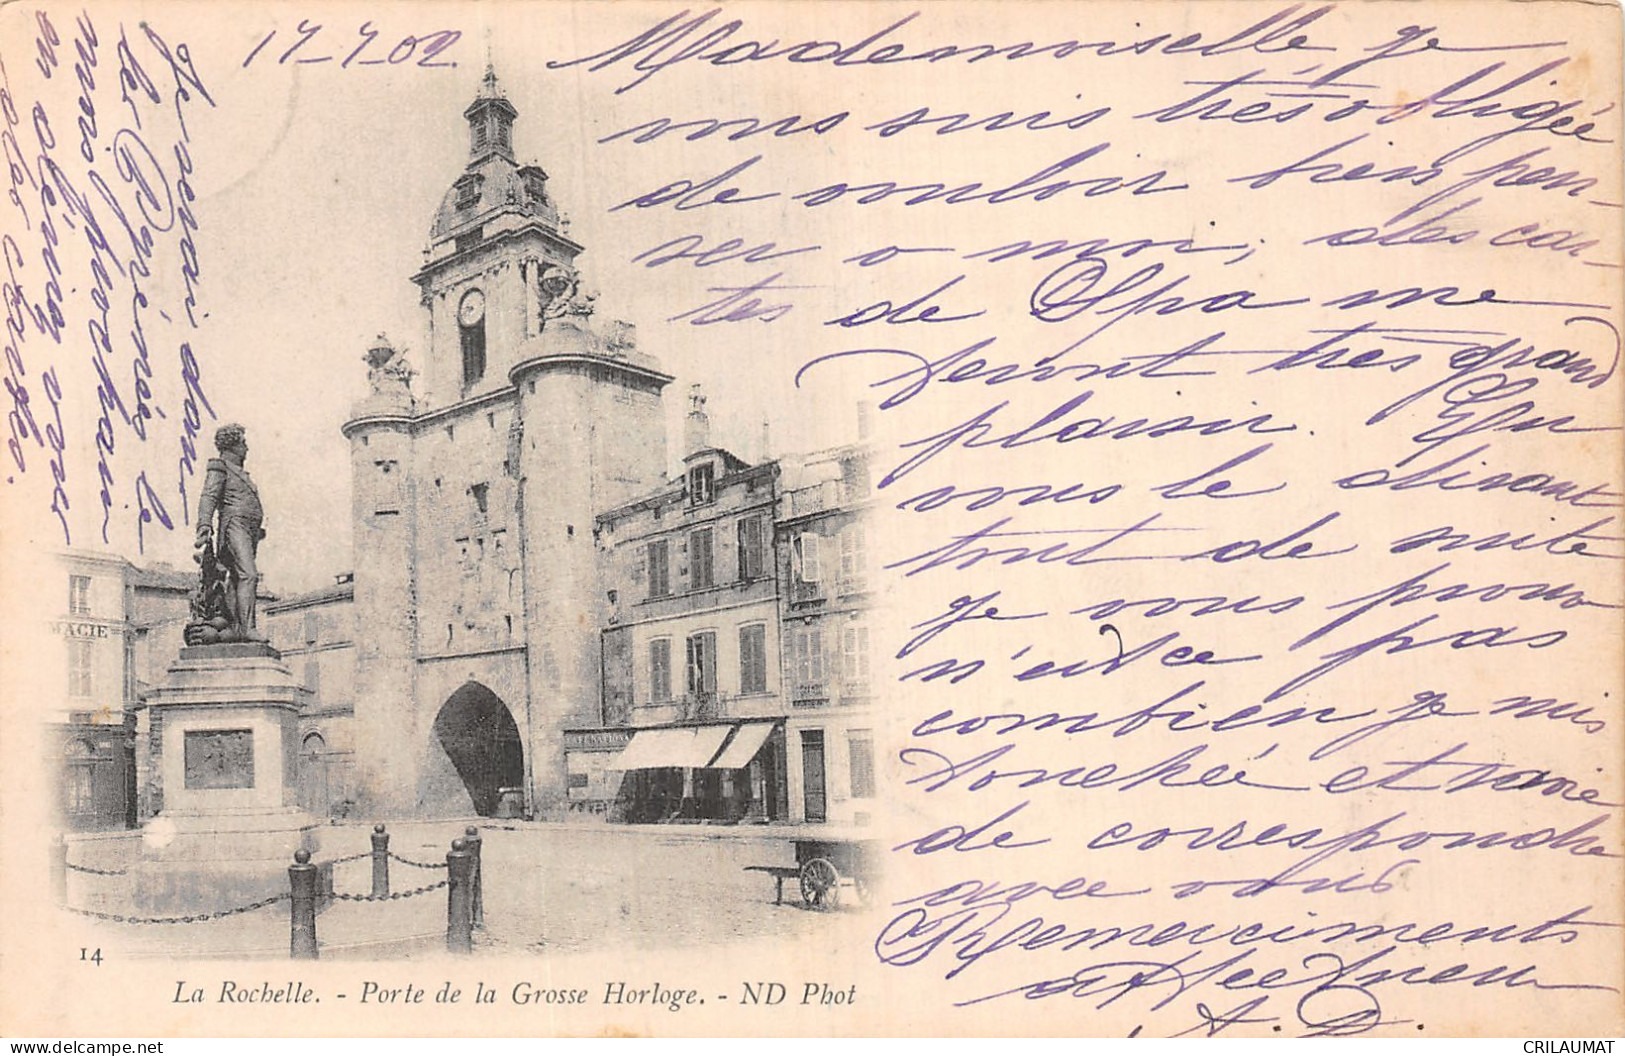 17-7-02.
Mademoiselle, je
vous suis très obligée
de vouloir bien pen-
ser a moi, des car-
tes de Spa me
feront très grand
plaisir. En
vous le disant
tout de suite
je vous prouve
n'est ce pas
combien je suis
touchée et ravie
de correspondre
avec vous
Remerciments
affectueux
A. D.
Je serai dans
les Pyrénées le
mois prochain
en
14
MACIE
NATIONA
La Rochelle. - Porte de la Grosse Horloge. - ND Phot
CRILAUMAT